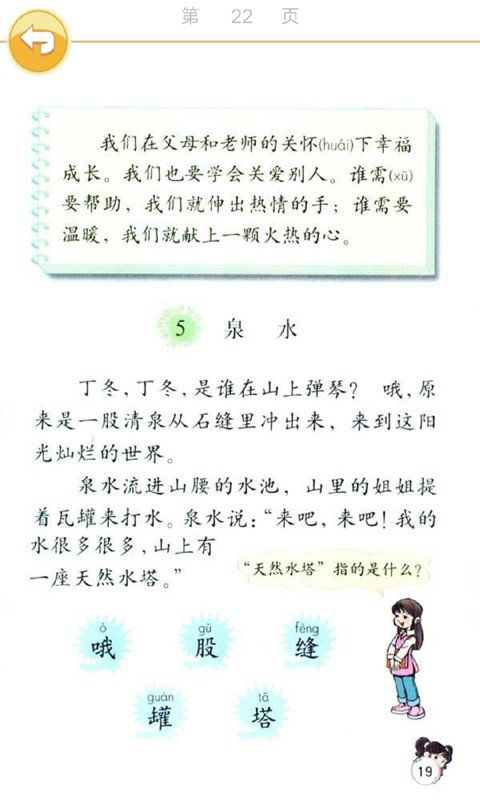 第 22 页
我们在父母和老师的关怀(huái)下幸福
成长。我们也要学会关爱别人。谁需(xū)
要帮助，我们就伸出热情的手；谁需要
温暖，我们就献上一颗火热的心。
5 泉 水
丁冬，丁冬，是谁在山上弹琴？ 哦，原
来是一股清泉从石缝里冲出来，来到这阳
光灿烂的世界。
泉水流进山腰的水池，山里的姐姐提
着瓦罐来打水。泉水说：“来吧，来吧！我的
水很多很多，山上有
一座天然水塔。”
“天然水塔”指的是什么？
ò gǔ fèng
哦 股 缝
guàn tǎ
罐 塔
19